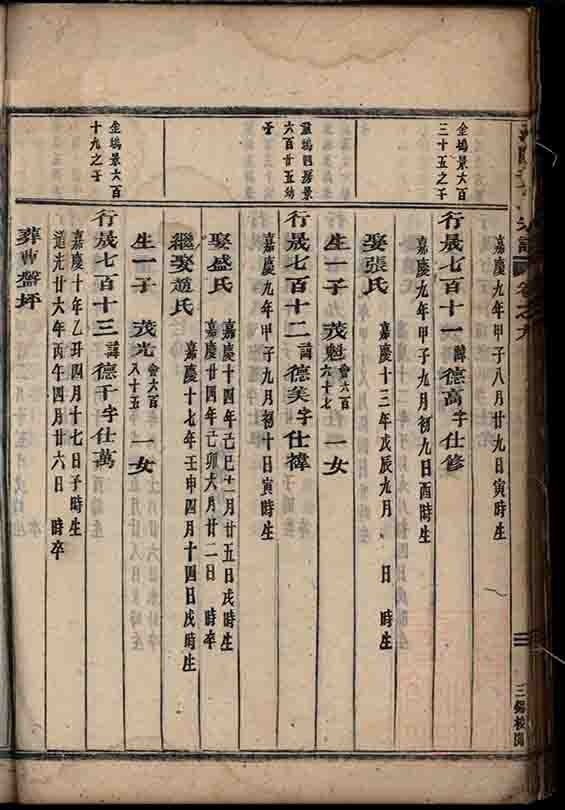 譜 卷之九
三錫校閱
嘉慶九年甲子八月廿九日寅時生
金塢景六百三十五之子
行晟七百十一 諱德高字仕修
嘉慶九年甲子九月初九日酉時生
娶張氏 嘉慶十三年戊辰九月 日 時生
生一子 茂魁 會六百六十七 一女
景六百廿五幼子
行晟七百十二 諱德美字仕禕
嘉慶九年甲子九月初十日寅時生
娶盛氏 嘉慶十四年己巳十一月廿五日戌時生
嘉慶廿四年己卯六月廿二日 時卒
繼娶趙氏 嘉慶十七年壬申四月十四日戌時生
生一子 茂光 會六百八十五 一女
金塢景六百十九之子
行晟七百十三 諱德千字仕萬
嘉慶十年乙丑四月十七日子時生
道光廿六年丙午四月廿六日 時卒
葬曹盤坪